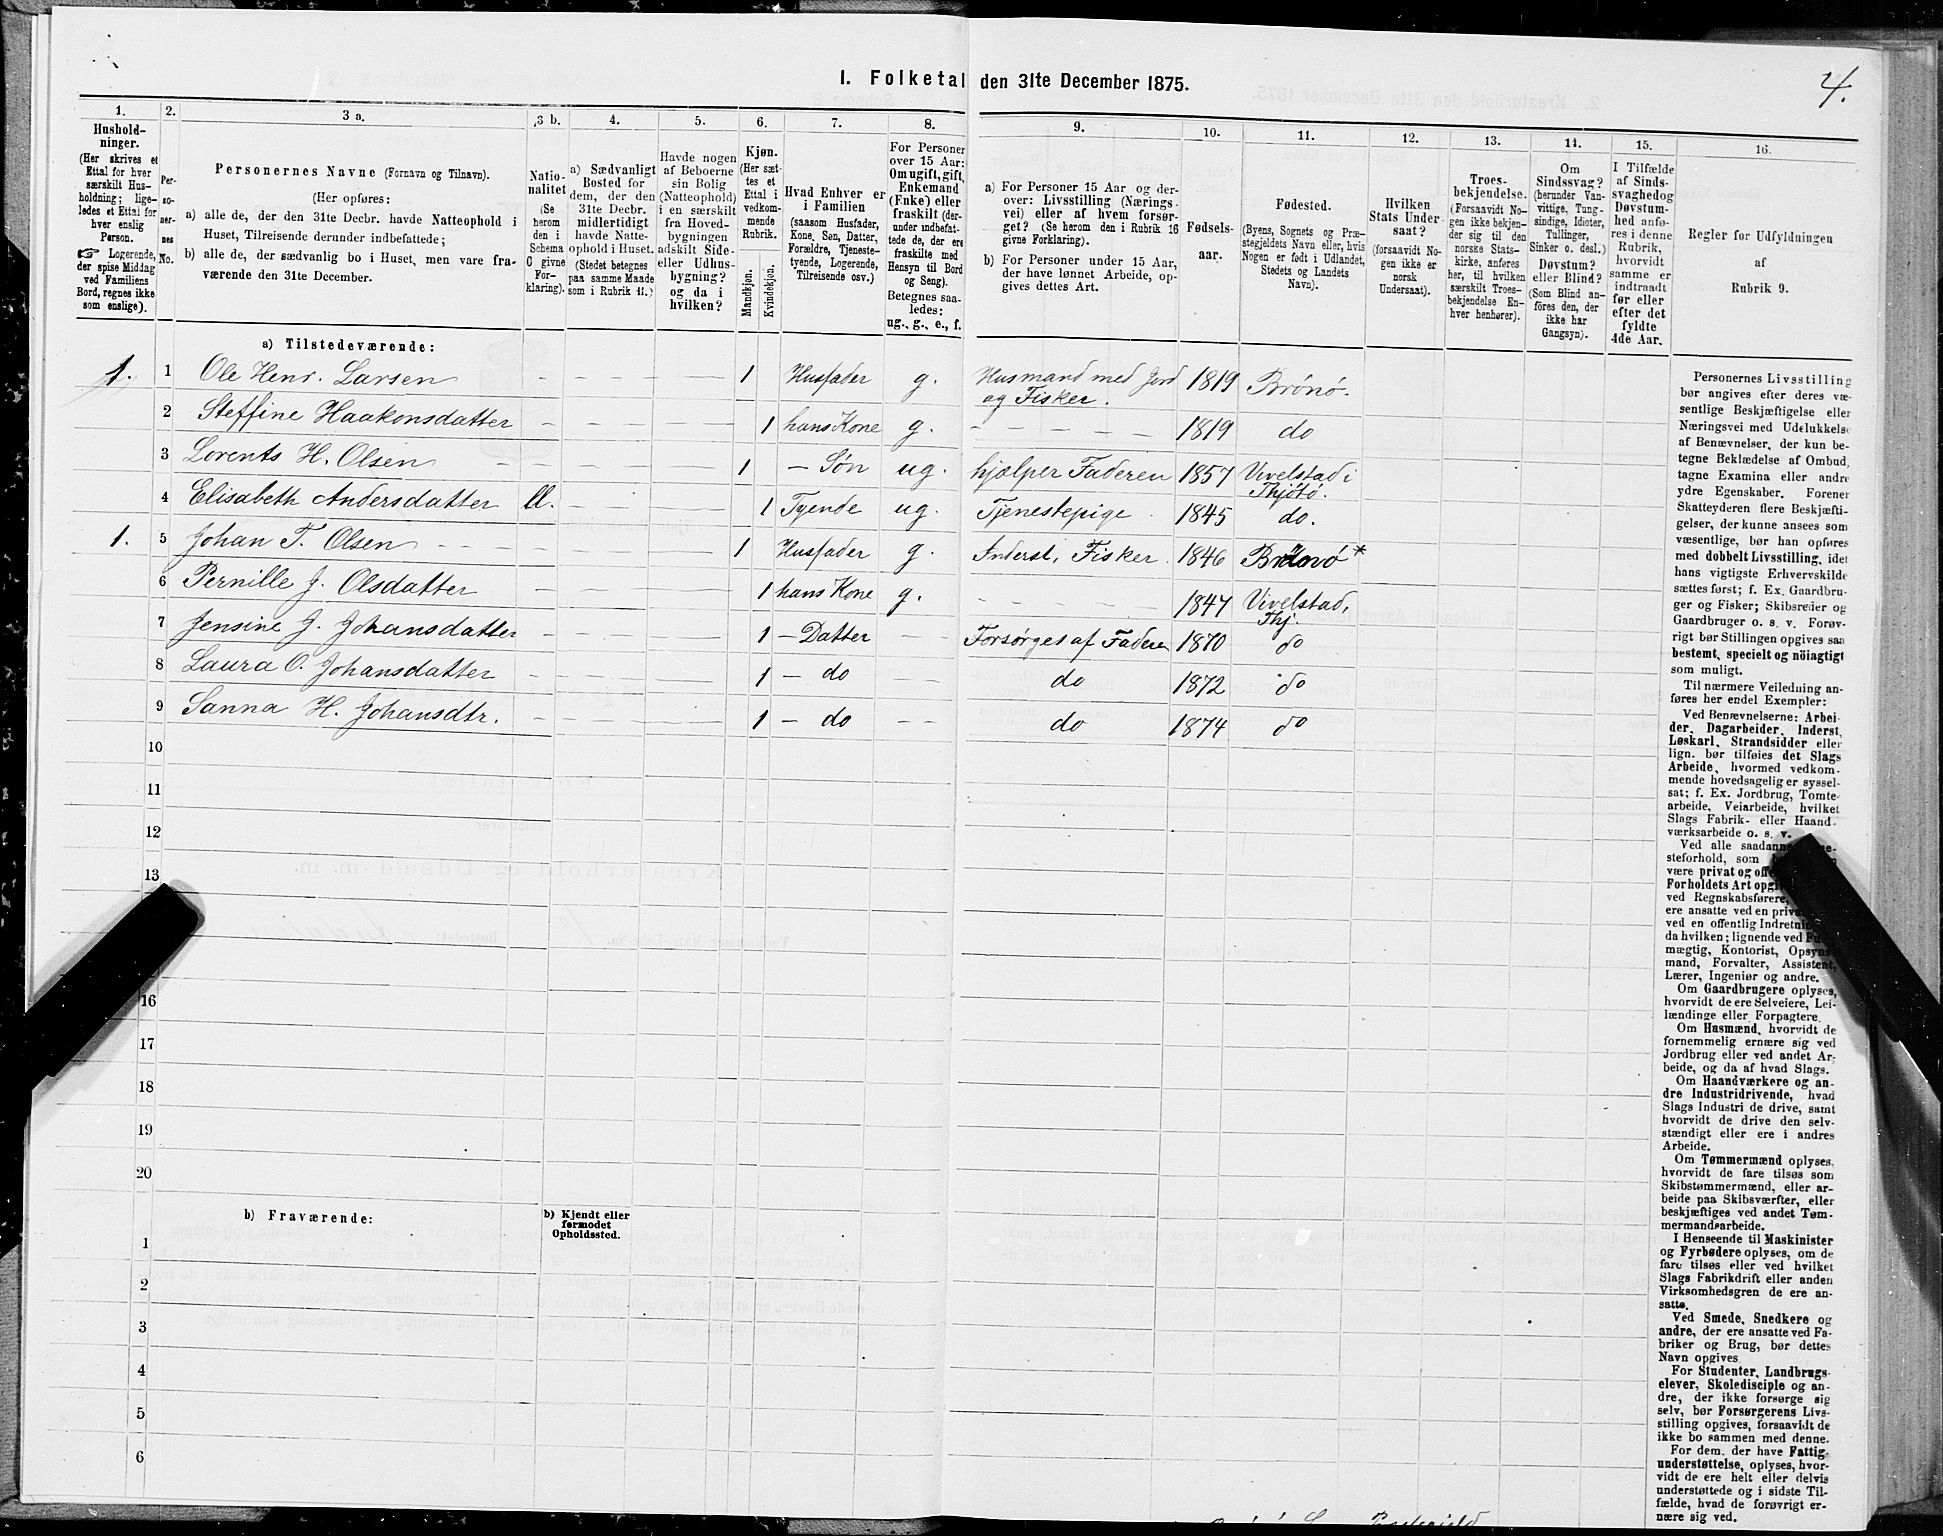 1. Folketal den 31te December 1875.
4.
1.
Hushold-
ninger.
(Her skrives et
Ettal for hver
særskilt Hus-
holdning; lige-
ledes et Ettal for
hver enslig
Person.
☞ Logerende,
der spise Middag
ved Familiens
Bord, regnes ikke
som enslige).
2.
Per-
so-
ner-
nes
No.
3 a.
Personernes Navne (Fornavn og Tilnavn).
(Her opføres:
a) alle de, der den 31te Decbr. havde Natteophold i
Huset, Tilreisende derunder indbefattede;
b) alle de, der sædvanlig bo i Huset, men vare fra-
værende den 31te December.
3 b.
Natio-
nalitet
(Se
herom
den i
Schema
C givne
For-
klaring).
4.
a) Sædvanligt
Bosted for
dem, der den
31te Decbr.
midlertidigt
havde Natte-
ophold i Huset.
(Stedet betegnes
paa samme Maade
som i Rubrik 11.)
5.
Havde nogen
af Beboerne
sin Bolig
(Natteophold)
i en særskilt
fra Hoved-
bygningen
adskilt Side-
eller Udhus-
bygning?
og da i
hvilken?
6.
Kjøn.
(Her sæt-
tes et
Ettal i
vedkom-
mende
Rubrik.
Mandkjøn.
Kvindekjøn.
7.
Hvad Enhver er
i Familien
(saasom Husfader,
Kone, Søn, Datter,
Forældre, Tjeneste-
tyende, Logerende,
Tilreisende osv.)
8.
For Personer
over 15 Aar:
Om ugift, gift,
Enkemand
(Enke) eller
fraskilt (der-
under indbefat-
tede de, der ere
fraskilte med
Hensyn til Bord
og Seng).
Betegnes saa-
ledes:
ug., g., e., f.
9.
a) For Personer 15 Aar og der-
over: Livsstilling (Nærings-
vei) eller af hvem forsør-
get? (Se herom den i Rubrik 16
givne Forklaring).
b) For Personer under 15 Aar,
der have lønnet Arbeide, op-
gives dettes Art.
10.
Fødsels-
aar.
11.
Fødested.
(Byens, Sognets og Præ-
stegjeldets Navn eller, hvis
Nogen er født i Udlandet,
Stedets og Landets
Navn).
12.
Hvilken
Stats Under-
saat?
(forsaavidt No-
gen ikke er
norsk
Undersaat).
13.
Troes-
bekjendelse.
(Forsaavidt No-
gen ikke bekjen-
der sig til den
norske Stats-
kirke, anføres
her, til hvilken
særskilt Troes-
bekjendelse En-
hver henhører).
14.
Om
Sindssvag?
(herunder Van-
vittige, Tung-
sindige, Idioter,
Tullinger,
Sinker o. desl.)
Døvstum?
eller Blind?
(Som Blind an-
føres den, der
ikke har
Gangsyn).
15.
I Tilfælde
af Sinds-
svaghed og
Døvstum-
hed anfø-
res i denne
Rubrik,
hvorvidt
samme er
indtraadt
før eller
efter det
fyldte
4de Aar.
16.
Regler for Udfyldningen
af
Rubrik 9.
a) Tilstedeværende:
1. 1 Ole Henr. Larsen 1 Husfader g. Husmand med Jord og Fisker. 1819 Brønø.
2 Steffine Haakonsdatter 1 hans Kone g. 1819 do
3 Lorents H. Olsen 1 - Søn ug. hjælper Faderen 1857 Vivelstad i Thjøtø.
4 Elisabeth Andersdatter ll. 1 Tyende ug. Tjenestepige 1845 do.
1. 5 Johan T. Olsen 1 Husfader g. Inderst, Fisker. 1846 Brønø*
6 Pernille J. Olsdatter 1 hans Kone g. 1847 Vivelstad, Thj.
7 Jensine J. Johansdatter 1 - Datter Forsørges af Faderen 1870 do
8 Laura O. Johansdatter 1 - do do 1872 do
9 Sanna H. Johansdtr. 1 - do do 1874 do
10
11
12
13
16
17
18
19
20
b) Fraværende:
b) Kjendt eller
formodet
Opholdssted.
1
2
3
4
5
6
Personernes Livsstilling
bør angives efter deres væ-
sentlige Beskjæftigelse eller
Næringsvei med Udelukkelse
af Benævnelser, der kun be-
tegne Beklædelse af Ombud,
tagne Examina eller andre
ydre Egenskaber. Forener
Skatteyderen flere Beskjæfti-
gelser, der kunne ansees som
væsentlige, bør han opføres
med dobbelt Livsstilling, idet
hans vigtigste Erhvervskilde
sættes først; f. Ex. Gaardbru-
ger og Fisker; Skibsreder og
Gaardbruger o. s. v. Forøv-
rigt bør Stillingen opgives saa
bestemt, specielt og nöiagtigt
som muligt.
Til nærmere Veiledning an-
føres her endel Exempler:
Ved Benævnelserne: Arbei-
der, Dagarbeider, Inderst,
Løskarl, Strandsidder eller
lign. bør tilføies det Slags
Arbeide, hvormed vedkom-
mende hovedsagelig er syssel-
sat; f. Ex. Jordbrug, Tomte-
arbeide, Veiarbeide, hvilket
Slags Fabrik- eller Haand-
værksarbeide o. s. v.
Ved alle saadanne
steforhold, som
være privat og
Forholdets Art
ved Regnskabsførere,
ere ansatte ved en
ved en offentlig
da hvilken; lignende ved
mægtig, Kontorist,
mand, Forvalter, Assistent,
Lærer, Ingeniør og andre.
Om Gaardbrugere oplyses,
hvorvidt de ere Selveiere, Lei-
lændinge eller Forpagtere.
Om Husmænd, hvorvidt de
fornemmelig ernære sig ved
Jordbrug eller ved andet Ar-
beide, og da af hvad Slags.
Om Haandværkere og an-
dre Industridrivende, hvad
Slags Industri de drive, samt
hvorvidt de drive den selv-
stændigt eller ere i andres
Arbeide.
Om Tømmermænd oplyses,
hvorvidt de fare tilsøs som
Skibstømmermænd, eller ar-
beide paa Skibsværfter, eller
beskjæftiges ved andet Tøm-
mermandsarbeide.
I Henseende til Maskinister
og Fyrbødere oplyses, om de
fare tilsøs eller ved hvilket
Slags Fabrikdrift eller anden
Virksomhedsgren de ere an-
satte.
Ved Smede, Snedkere og
andre, der ere ansatte ved Fa-
briker og Brug, bør dettes
Navn opgives
For Studenter, Landbrugs-
elever, Skoledisciple og an-
dre, der ikke forsørge sig
selv, bør Forsørgerens Livs-
stilling opgives, forsaavidt de
ikke bo sammen med denne.
For dem, der have Fattig-
understøttelse, oplyses, hvor-
vidt de ere helt eller delvis
understøttede og i sidste Til-
fælde, hvad de forøvrigt er-
nære sig ved.